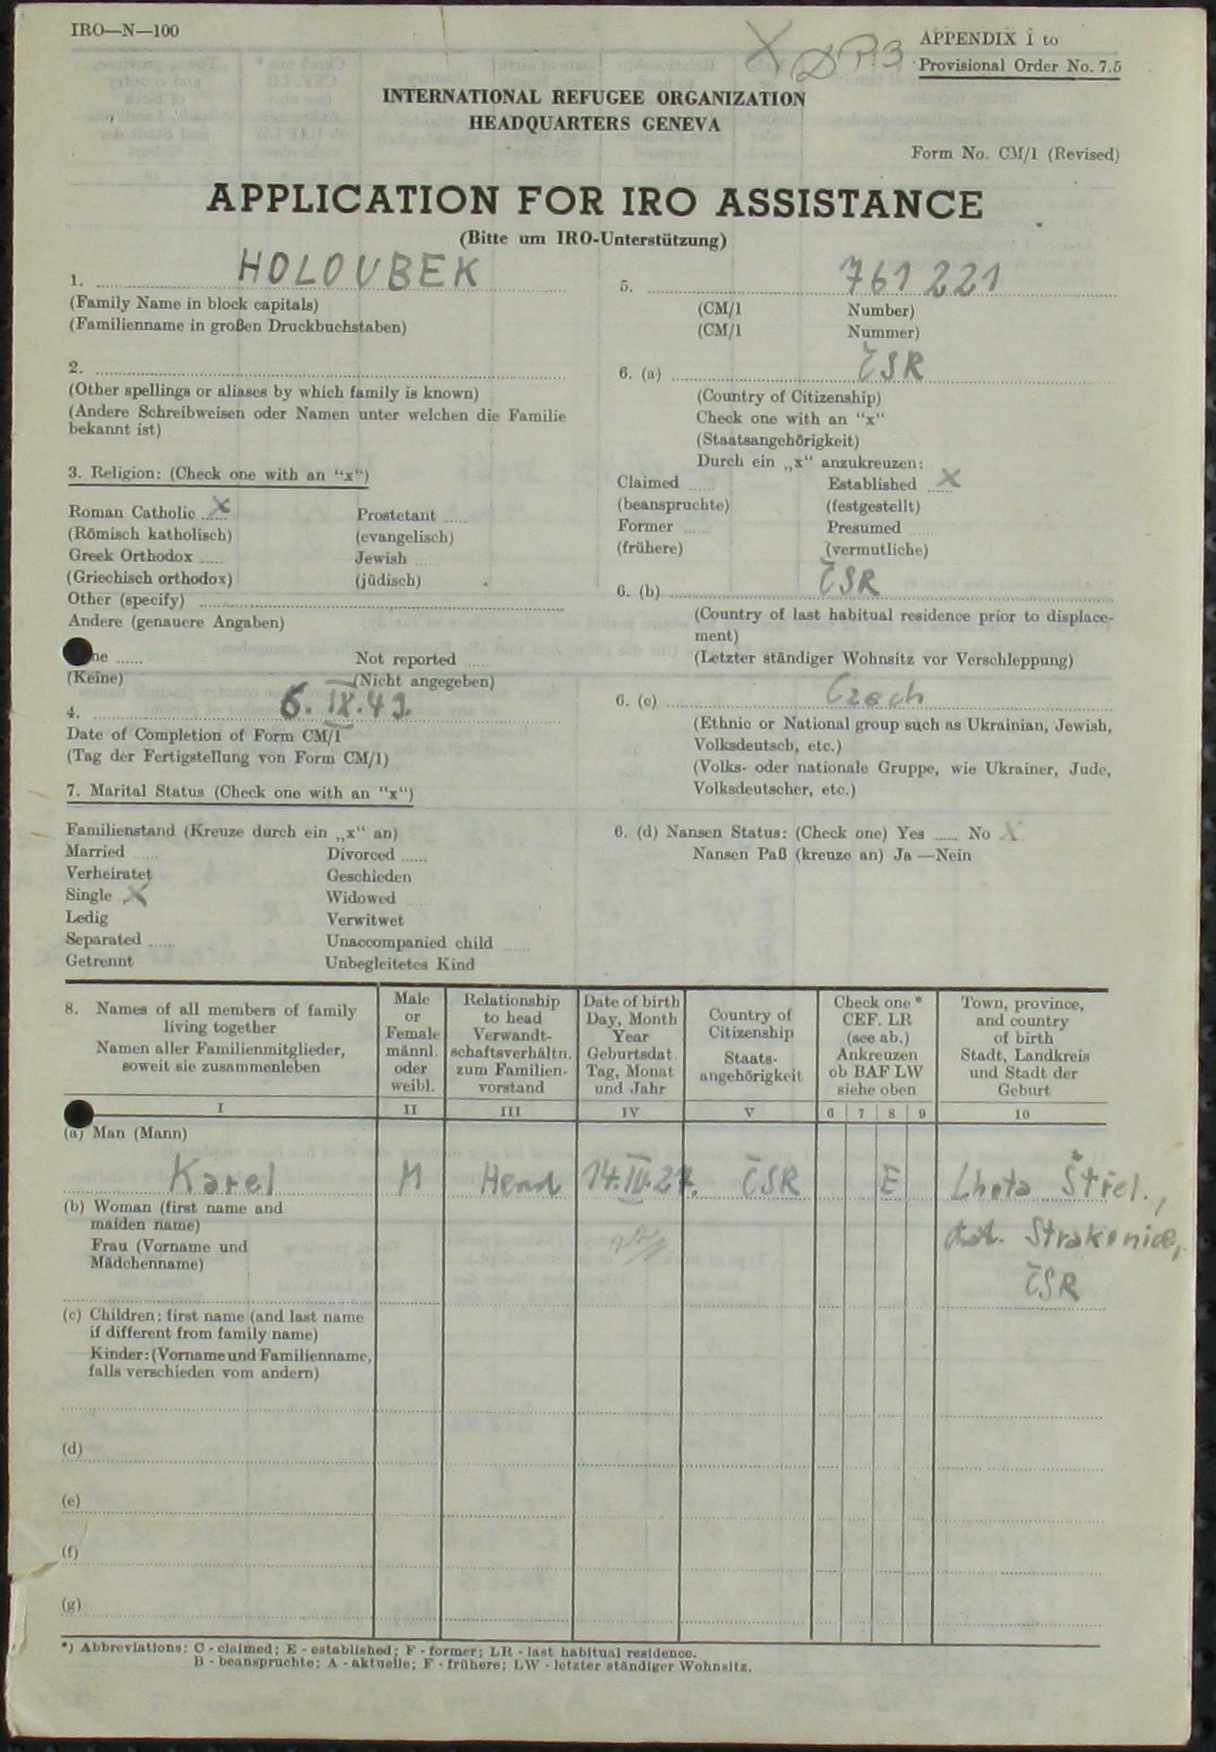 IRO—N—100
APPENDIX 1 to
Provisional Order No. 7.5
INTERNATIONAL REFUGEE ORGANIZATION
HEADQUARTERS GENEVA
Form No. CM/1 (Revised)
APPLICATION FOR IRO ASSISTANCE
(Bitte um IRO-Unterstützung)
1. HOLOUBEK
(Family Name in block capitals)
(Familienname in großen Druckbuchstaben)
2.
(Other spellings or aliases by which family is known)
(Andere Schreibweisen oder Namen unter welchen die Familie
bekannt ist)
3. Religion: (Check one with an "x")
Roman Catholic X Prostetant
(Römisch katholisch) (evangelisch)
Greek Orthodox Jewish
(Griechisch orthodox) (jüdisch)
Other (specify)
Andere (genauere Angaben)
ne Not reported
(Keine) (Nicht angegeben)
4. 6. IX. 49.
Date of Completion of Form CM/1
(Tag der Fertigstellung von Form CM/1)
7. Marital Status (Check one with an "x")
Familienstand (Kreuze durch ein „x" an)
Married Divorced
Verheiratet Geschieden
Single X Widowed
Ledig Verwitwet
Separated Unaccompanied child
Getrennt Unbegleitetes Kind
5. 761 221
(CM/1 Number)
(CM/1 Nummer)
6. (a) ČSR
(Country of Citizenship)
Check one with an "x"
(Staatsangehörigkeit)
Durch ein „x" anzukreuzen:
Claimed Established X
(beanspruchte) (festgestellt)
Former Presumed
(frühere) (vermutliche)
6. (b) ČSR
(Country of last habitual residence prior to displace-
ment)
(Letzter ständiger Wohnsitz vor Verschleppung)
6. (c) Czech
(Ethnic or National group such as Ukrainian, Jewish,
Volksdeutsch, etc.)
(Volks- oder nationale Gruppe, wie Ukrainer, Jude,
Volksdeutscher, etc.)
6. (d) Nansen Status: (Check one) Yes No X
Nansen Paß (kreuze an) Ja —Nein
8. Names of all members of family
living together
Namen aller Familienmitglieder,
soweit sie zusammenleben
Male
or
Female
männl.
oder
weibl.
Relationship
to head
Verwandt-
schaftsverhältn.
zum Familien-
vorstand
Date of birth
Day, Month
Year
Geburtsdat.
Tag, Monat
und Jahr
Country of
Citizenship
Staats-
angehörigkeit
Check one *
CEF. LR
(see ab.)
Ankreuzen
ob BAF LW
siehe oben
Town, province,
and country
of birth
Stadt, Landkreis
und Stadt der
Geburt
I II III IV V 6 7 8 9 10
(a) Man (Mann)
Karel M Head 14.IV.27. ČSR E Lhota Střel.,
Strakonice,
ČSR
(b) Woman (first name and
maiden name)
Frau (Vorname und
Mädchenname)
(c) Children: first name (and last name
if different from family name)
Kinder: (Vorname und Familienname,
falls verschieden vom andern)
(d)
(e)
(f)
(g)
*) Abbreviations: C - claimed; E - established; F - former; LR - last habitual residence.
B - beanspruchte; A - aktuelle; F - frühere; LW - letzter ständiger Wohnsitz.